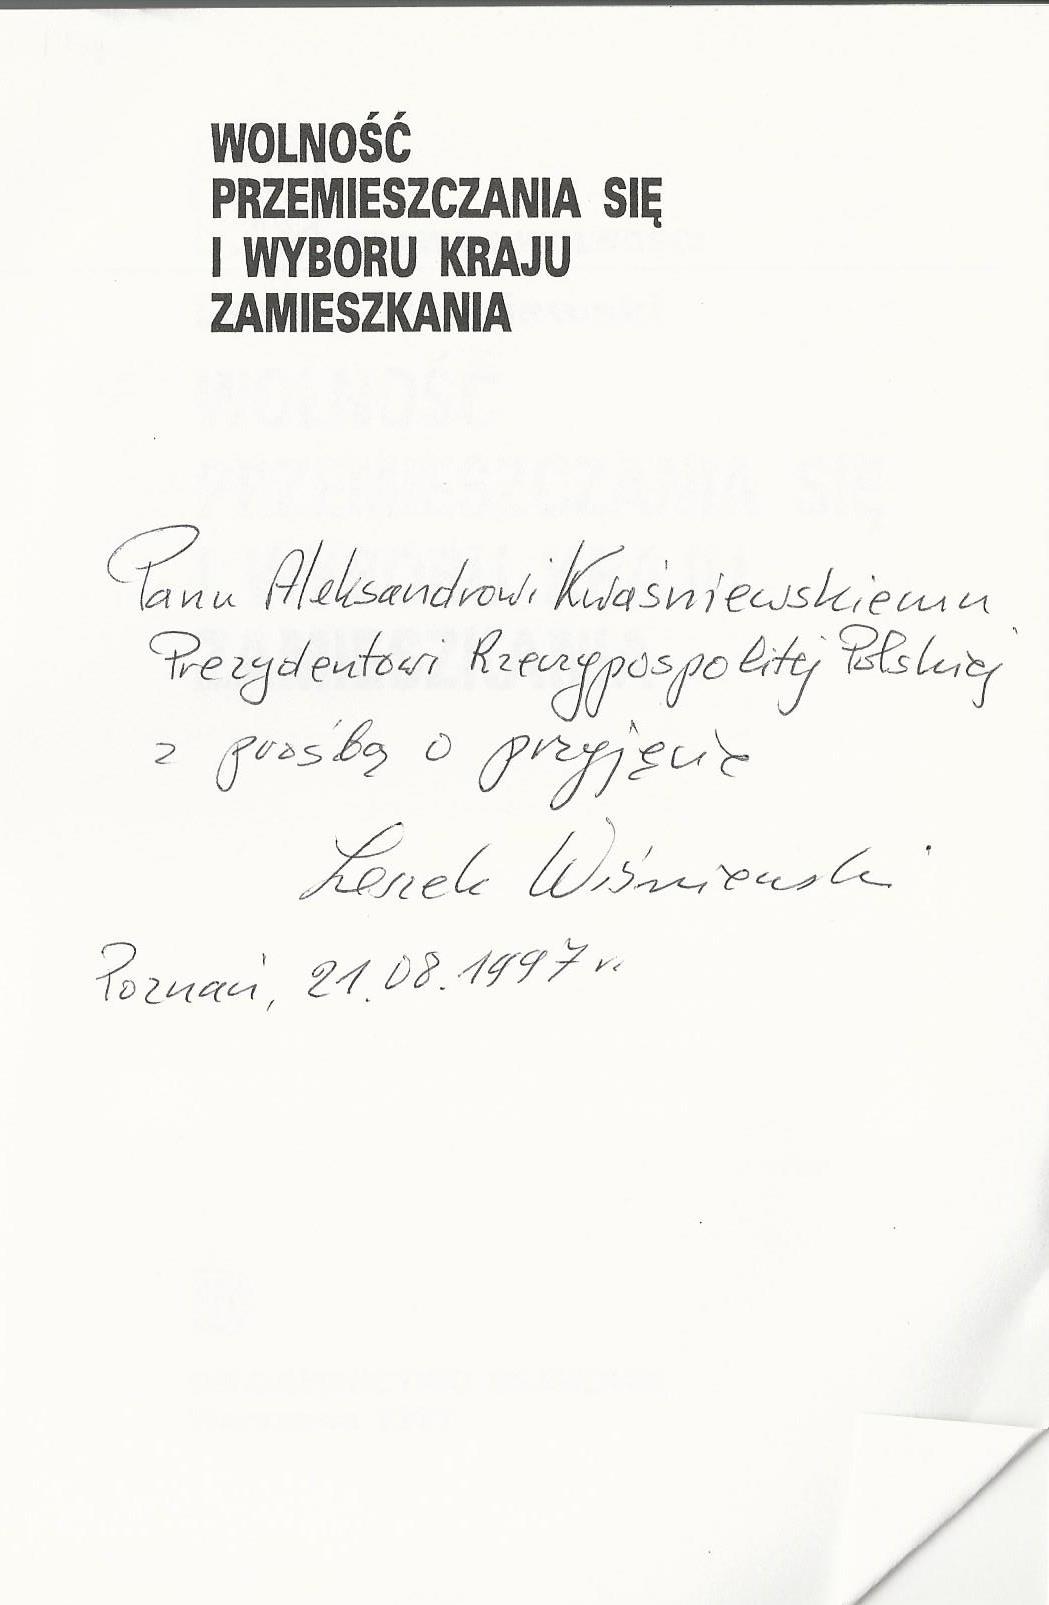 WOLNOŚĆ
PRZEMIESZCZANIA SIĘ
I WYBORU KRAJU
ZAMIESZKANIA
Panu Aleksandrowi Kwaśniewskiemu
Prezydentowi Rzeczypospolitej Polskiej
z prośbą o przyjęcie
Leszek Wiśniewski
Poznań, 21.08.1997 r.